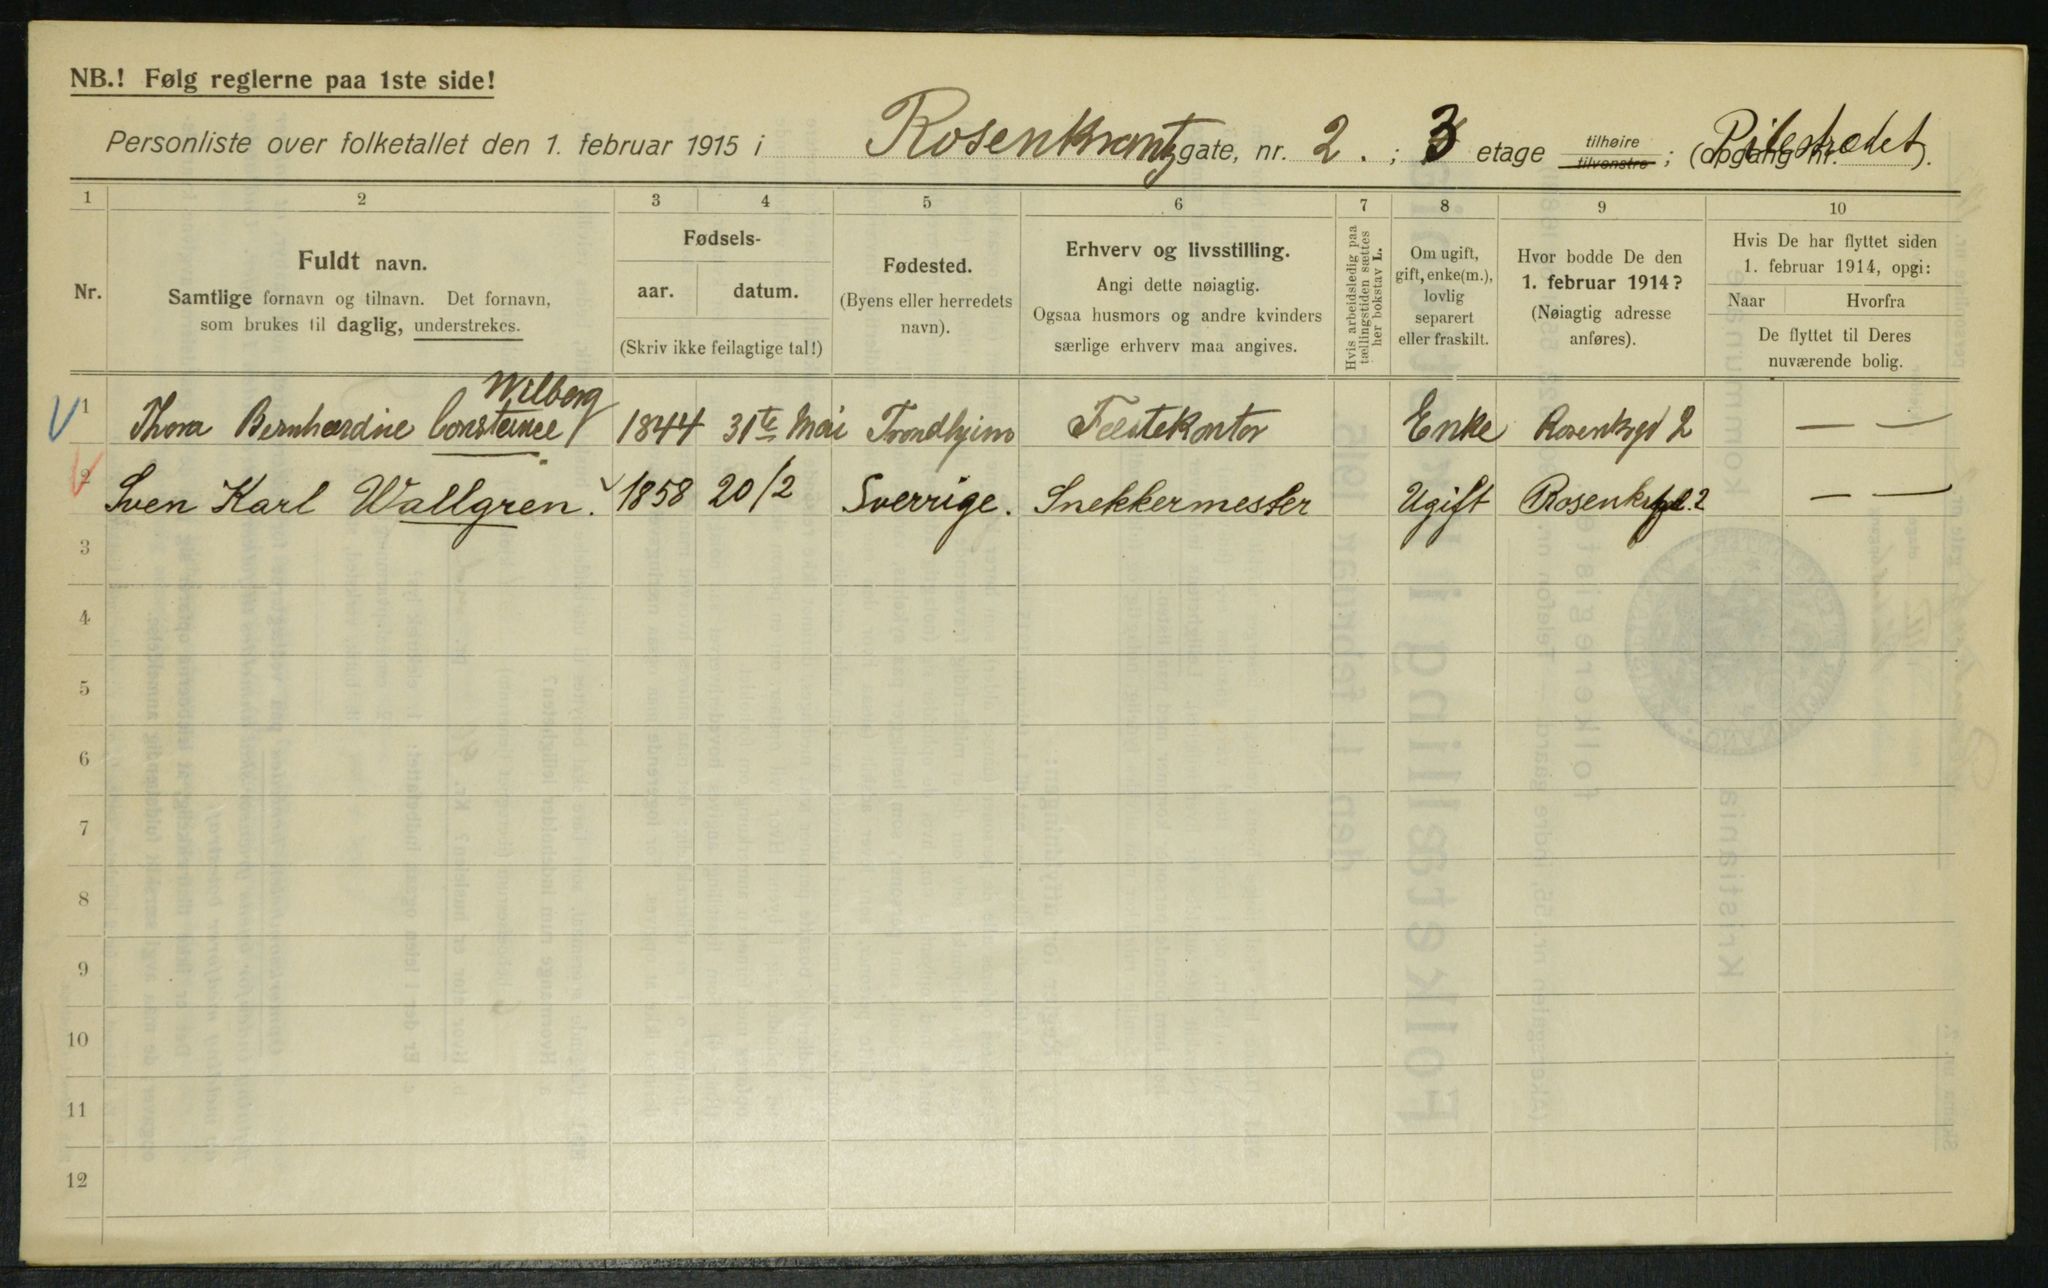 NB.! Følg reglerne paa 1ste side!
Personliste over folketallet den 1. februar 1915 i Rosenkrantz gate, nr. 2. ; 3 etage tilhøire tilvenstre ; (opgang nr. Pilestrædet ).
1 2 3 4 5 6 7 8 9 10
Nr.
Fuldt navn.
Samtlige fornavn og tilnavn. Det fornavn,
som brukes til daglig, understrekes.
Fødsels-
aar. datum.
(Skriv ikke feilagtige tal!)
Fødested.
(Byens eller herredets
navn).
Erhverv og livsstilling.
Angi dette nøiagtig.
Ogsaa husmors og andre kvinders
særlige erhverv maa angives.
Hvis arbeidsledig paa
tællingstiden sættes
her bokstav L.
Om ugift,
gift, enke(m.),
lovlig
separert
eller fraskilt.
Hvor bodde De den
1. februar 1914?
(Nøiagtig adresse
anføres).
Hvis De har flyttet siden
1. februar 1914, opgi:
Naar Hvorfra
De flyttet til Deres
nuværende bolig.
Wilberg
1 Thora Bernhardine Constance 1844 31te Mai Trondhjem Fæstekontor Enke Rosenkrgd 2 — —
2 Sven Karl Wallgren. 1858 20/2 Sverrige. Snekkermester Ugift 2 — —
3
4
5
6
7
8
9
10
11
12